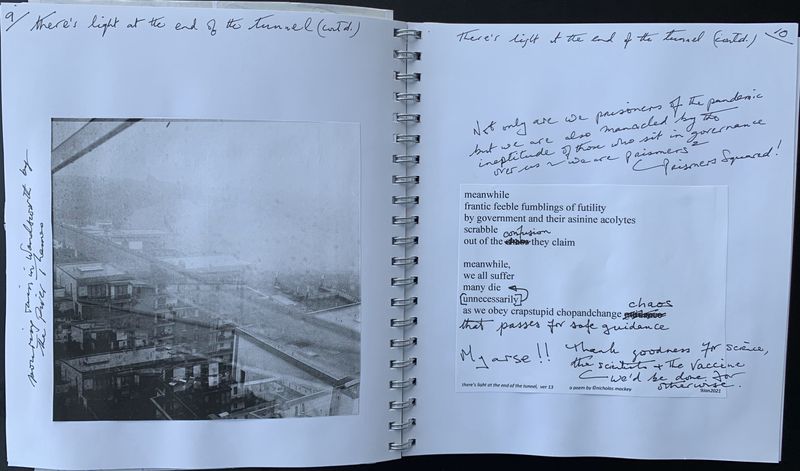 9/ there's light at the end of the tunnel (contd.)
morning rain in Wandsworth by
the River Thames
There's light at the end of the tunnel (contd.) 10
Not only are we prisoners of the pandemic
but we are also manacled by the
ineptitude of those who sit in governance
over us ~ we are prisoners²
Prisoners Squared!
meanwhile
frantic feeble fumblings of futility
by government and their asinine acolytes
scrabble
confusion
out of the chaos they claim
meanwhile,
we all suffer
many die
[unnecessarily]
chaos
as we obey crapstupid chopandchange
that passes for safe guidance
My arse!! Thank goodness for science,
the scientists + the vaccine
we'd be done for
otherwise.
there's light at the end of the tunnel, ver 13 a poem by ©nicholas mackey 9Jan2021